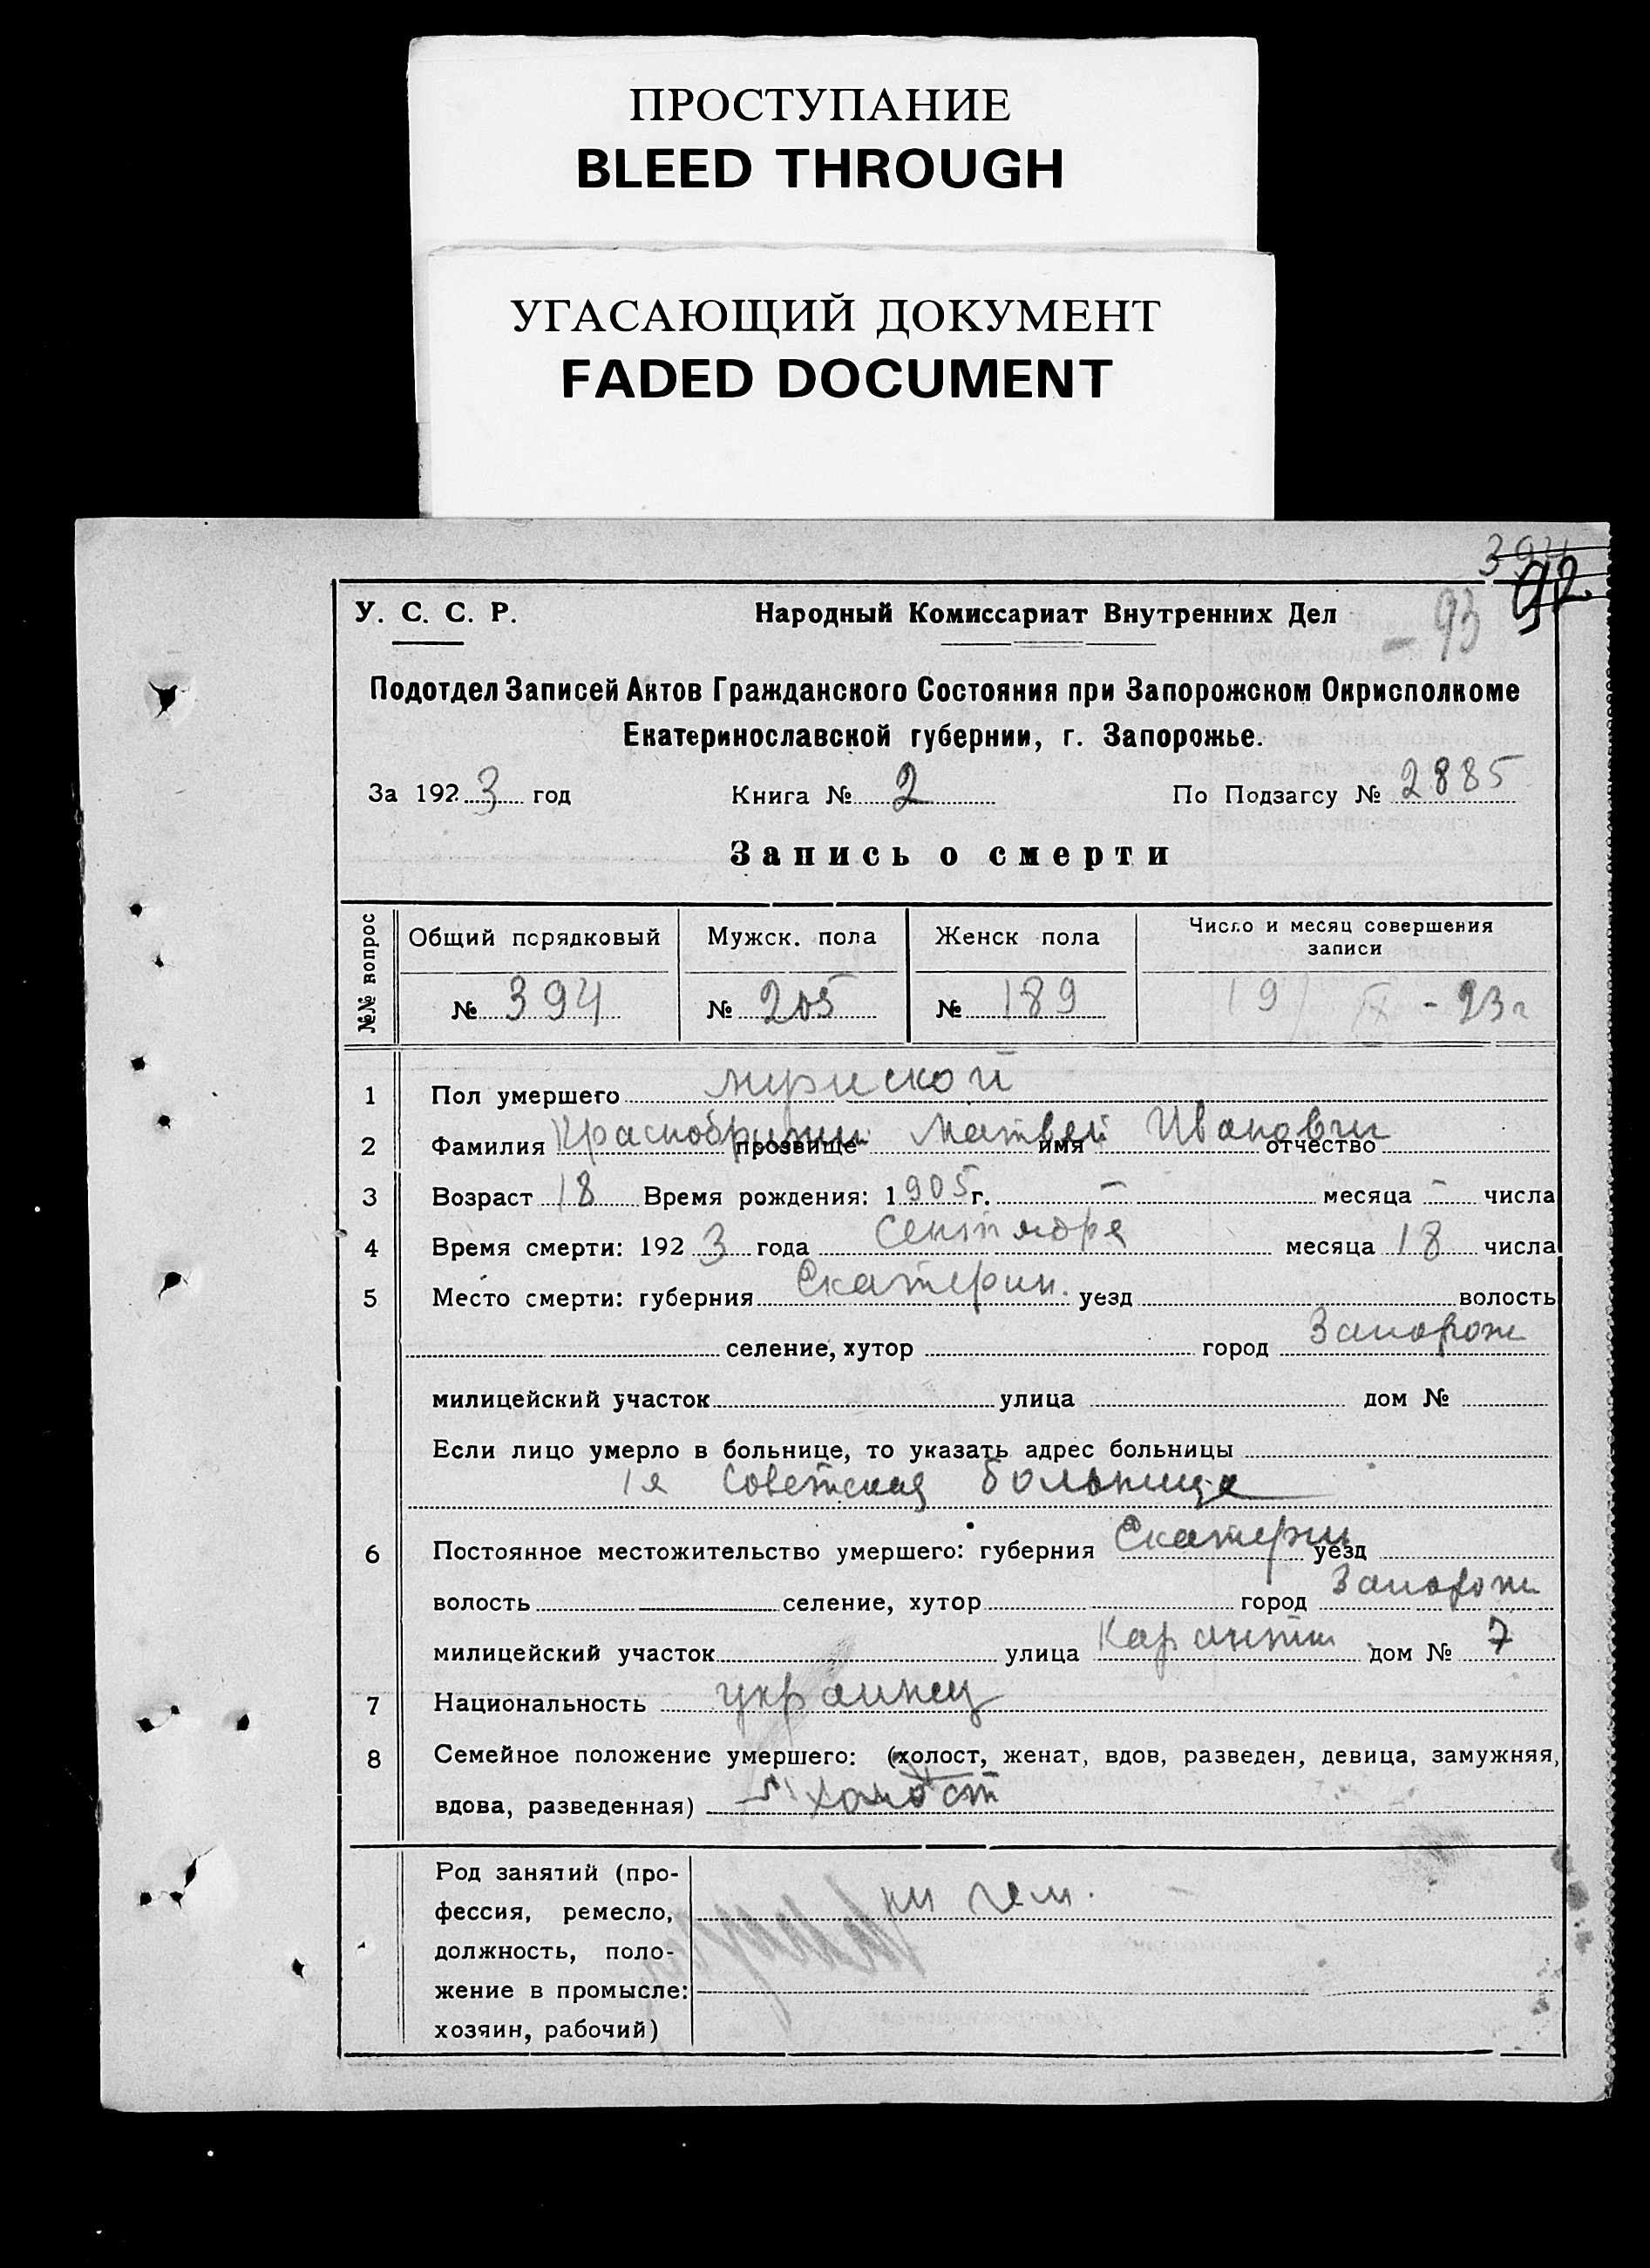 ПРОСТУПАНИЕ
BLEED THROUGH
УГАСАЮЩИЙ ДОКУМЕНТ
FADED DOCUMENT
394
92
- 93
У. С. С. Р. Народный Комиссариат Внутренних Дел
Подотдел Записей Актов Гражданского Состояния при Запорожском Окрисполкоме
Екатеринославской губернии, г. Запорожье.
За 1923 год Книга № 2 По Подзагсу № 2885
Запись о смерти
№№ вопрос
Общий порядковый Мужск. пола Женск пола Число и месяц совершения
записи
№ 394 № 205 № 189 19/IX - 23 г
1 Пол умершего мужской
2 Фамилия прозвище Матвей имя Иванович отчество
3 Возраст 18 Время рождения: 1905 г. — месяца - числа
4 Время смерти: 1923 года Сентября месяца 18 числа
5 Место смерти: губерния Екатерин. уезд волость
селение, хутор город Запорож
милицейский участок улица дом №
Если лицо умерло в больнице, то указать адрес больницы
1я Советская больница
6 Постоянное местожительство умершего: губерния Екатерин уезд
волость селение, хутор город Запорож
милицейский участок улица Карантин дом № 7
7 Национальность украинец
8 Семейное положение умершего: (холост, женат, вдов, разведен, девица, замужняя,
вдова, разведенная) холост
Род занятий (про-
фессия, ремесло, ни чем.
должность, поло-
жение в промысле:
хозяин, рабочий)